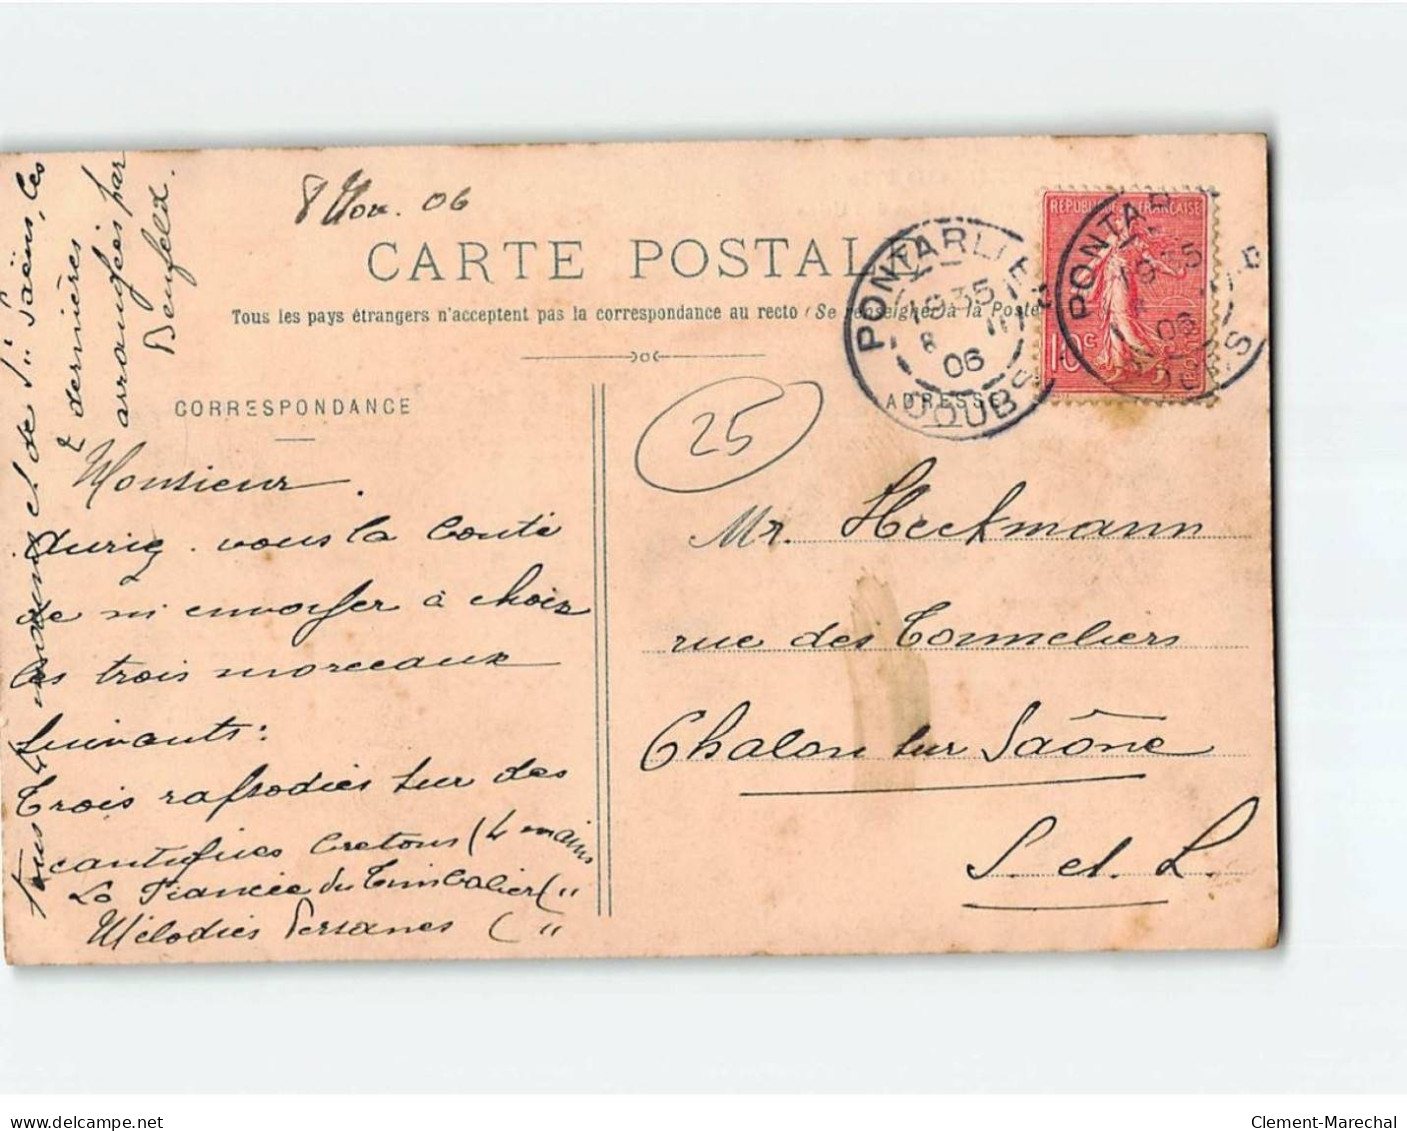 8 Nov. 06
CARTE POSTALE
Tous les pays étrangers n'acceptent pas la correspondance au recto (Se renseigner à la Poste)
CORRESPONDANCE
ADRESSE
RÉPUBLIQUE FRANÇAISE
10c
PONTARLIER
19 35
8 11
06
DOUBS
PONTAR
19 35
06
25
Monsieur.
auriez-vous la bonté
de m'envoyer à choix
les trois morceaux
suivants:
Trois rapsodies sur des
cantiques bretons (4 mains
La Fiancée du Timbalier ( "
Mélodies Persanes ( "
tous 4 mains et de St Saëns, les
2 dernières
arrangées par
Benfeld.
Mr. Heckmann
rue des Tonneliers
Chalon sur Saône
S. et L.
delcampe.net
Clement-Marechal